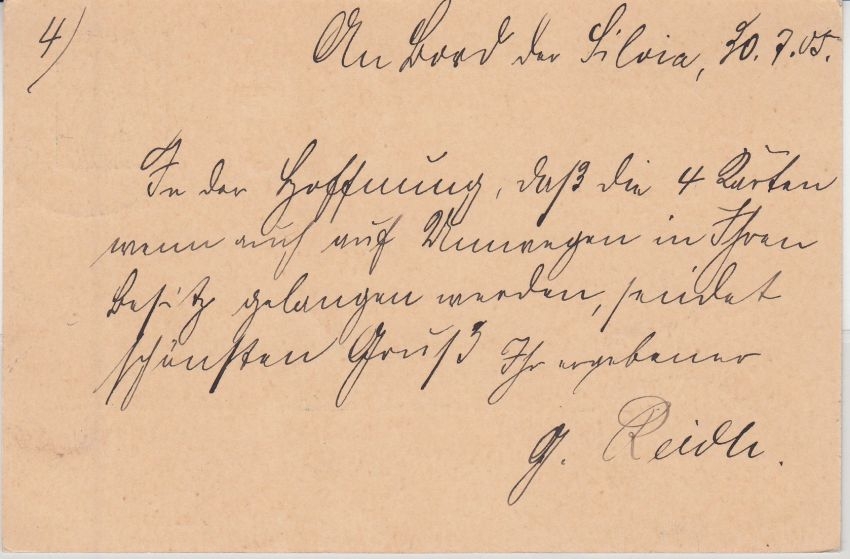 4)
An Bord der Silvia, 30.7.05.
In der Hoffnung, daß die 4 Karten
wenn auch auf Umwegen in Ihren
Besitz gelangen werden, sendet
schönsten Gruß Ihr ergebener
G.